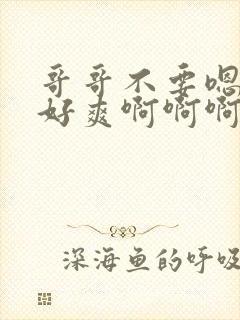 哥哥不要嗯
好爽啊啊啊
深海鱼的呼吸